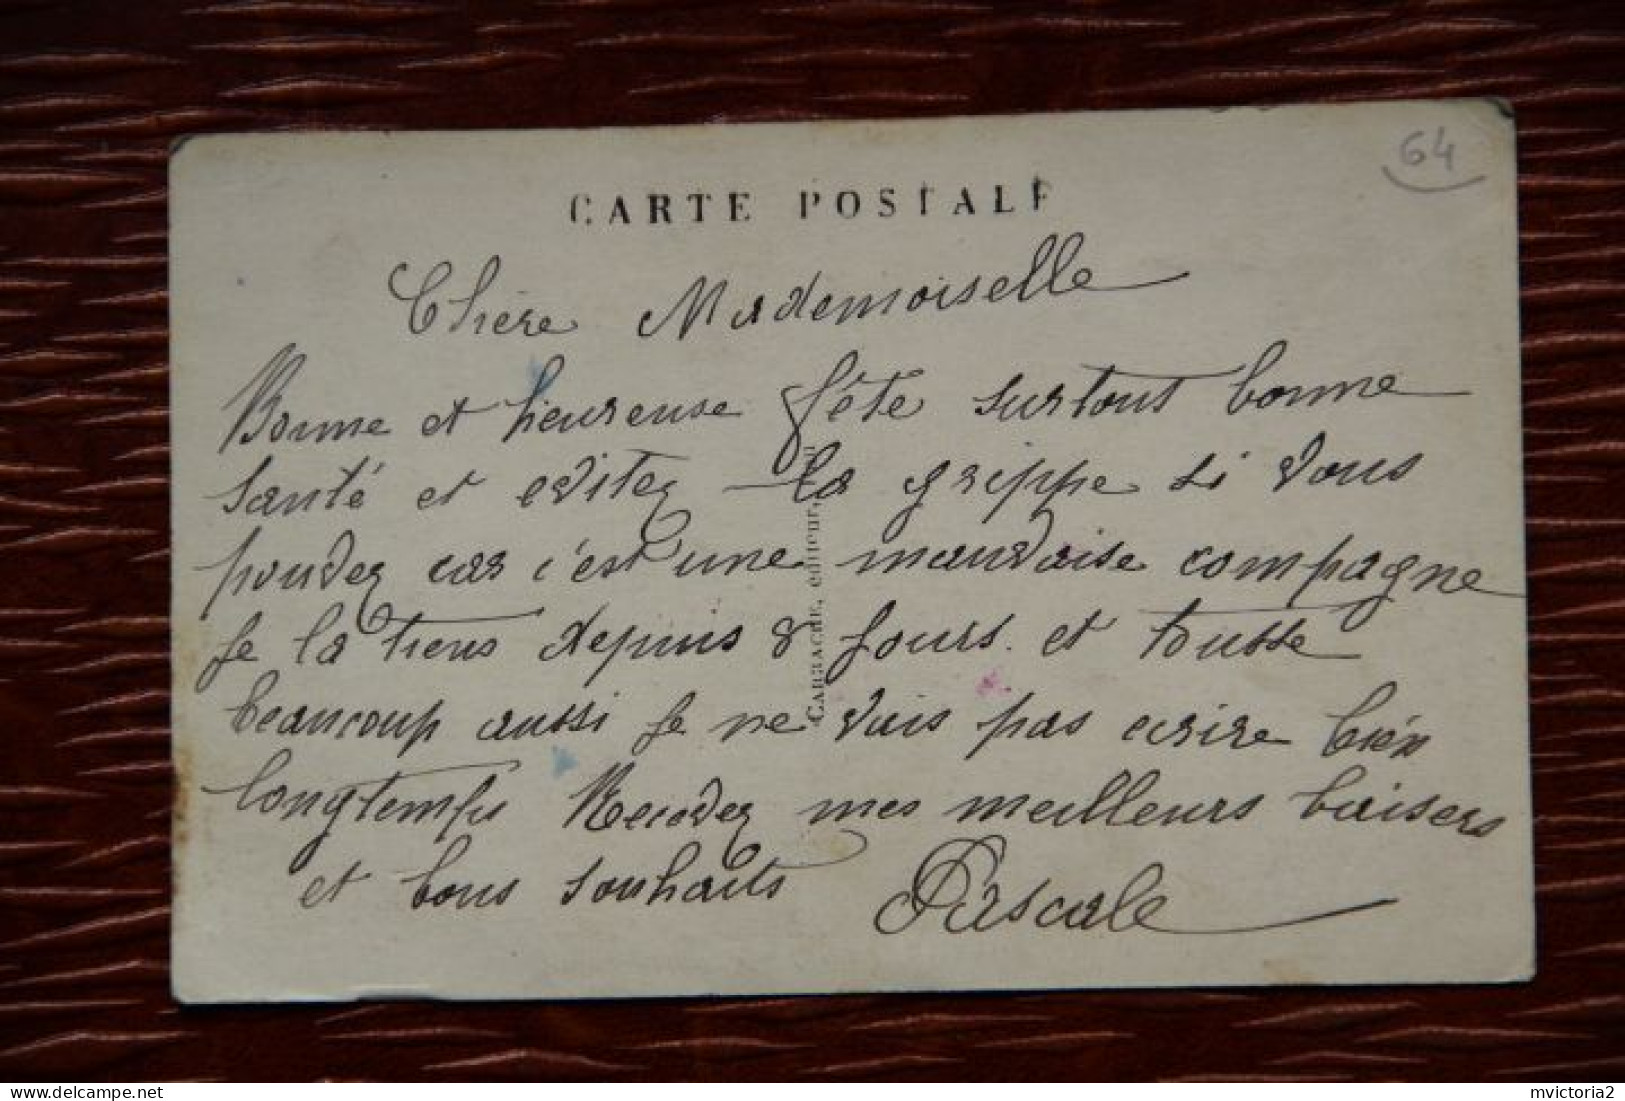 64
CARTE POSTALE
Chère Mademoiselle
Bonne et heureuse fête surtout bonne
santé et evitez la grippe si vous
pouvez car c'est une mauvaise compagne
Je la tiens depuis 8 jours. et tousse
beaucoup aussi je ne vais pas ecrire bien
longtemps Recevez mes meilleurs baisers
et bons souhaits Pascale
CARRACHE, éditeur,
mvictoria2